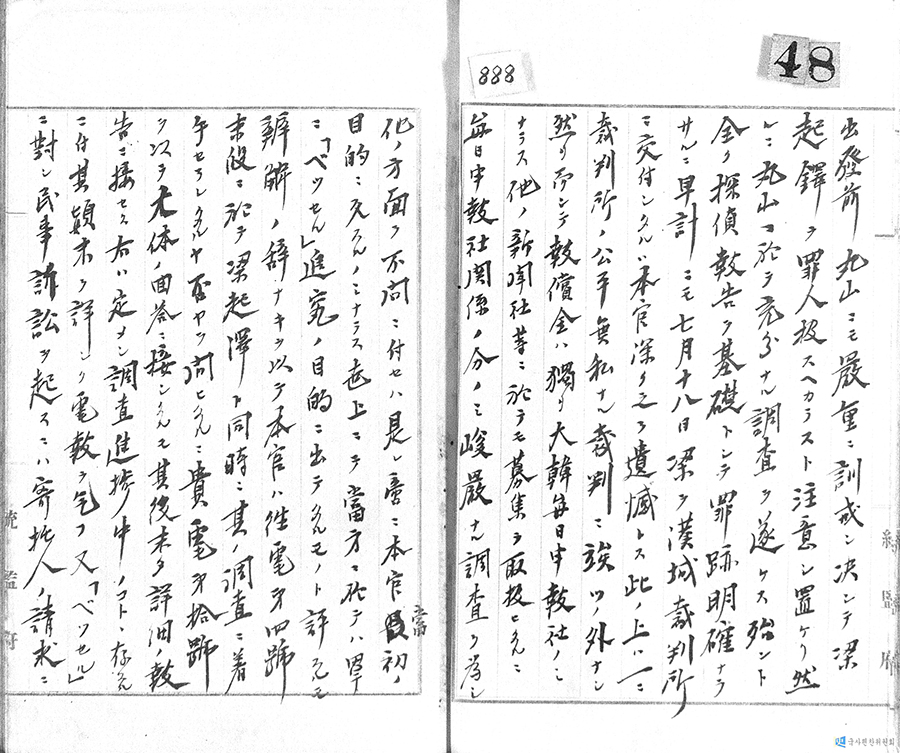 48
888
出發前丸山ニモ嚴重ニ訓戒シ決シテ梁
起鐸ヲ罪人扱スヘカラスト注意シ置ケリ然
ルニ丸山ニ於テ充分ナル調査ヲ遂ケス殆ント
全ク探偵報告ヲ基礎トシテ罪跡明確ナラ
サルニ早計ニモ七月十八日梁ヲ漢城裁判所
ニ交付シタルハ本官深ク之ヲ遺憾トス此ノ上ハ一ニ
裁判所ノ公平無私ナル裁判ニ竢ツノ外ナシ
然リ而シテ報償金ハ獨リ大韓每日申報社ノミ
ナラス他ノ新聞社等ニ於テモ募集ヲ取扱ヒタルニ
每日申報社関係ノ分ノミ峻嚴ナル調査ヲ為シ
他ノ方面ヲ不問ニ付セハ是レ啻ニ本官當初ノ
目的ニ反スルノミナラス世上ニテ當方ニ於テハ單
ニ「ベツセル」進究ノ目的ニ出テタルモノト評スルモ
辯解ノ辞ナキヲ以テ本官ハ往電第四號
末段ニ於テ梁起澤ト同時ニ其ノ調査ニ着
手セラレタルヤ否ヤヲ問ヒタルニ貴電第拾號
ヲ以テ大体ノ回答ニ接シタルモ其後未タ詳細ノ報
告ニ接セス右ハ定メシ調査進捗中ノコトヽ存スル
ニ付其顛末ヲ詳シク電報ヲ乞フ又「ベツセル」
ニ對シ民事訴訟ヲ起スニハ寄托人ノ請求ニ
統監府
統監府
국사편찬위원회